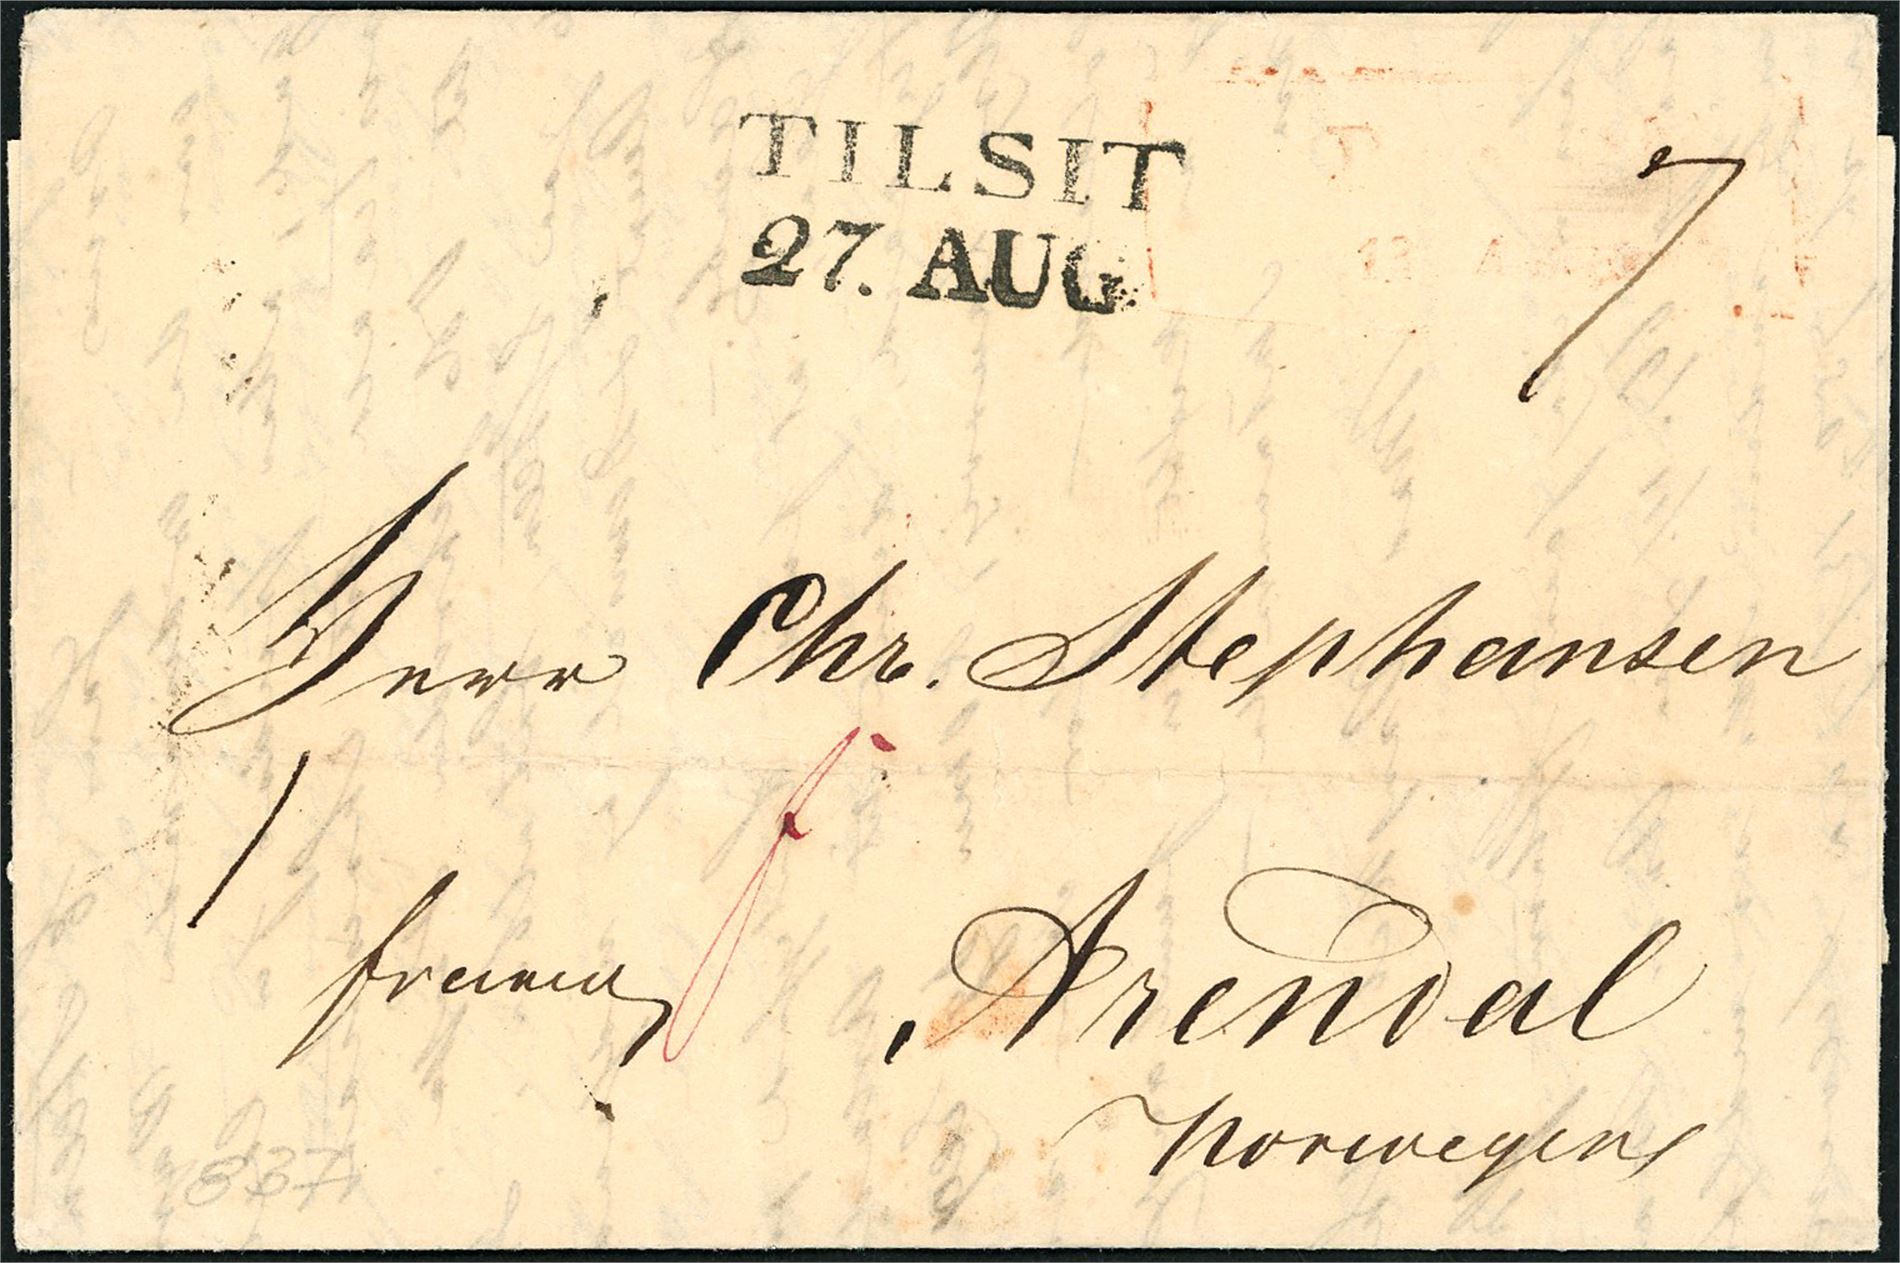 TILSIT
27. AUG
7
Herr Chr. Stephansen
franco
Arendal
Norwegen
837